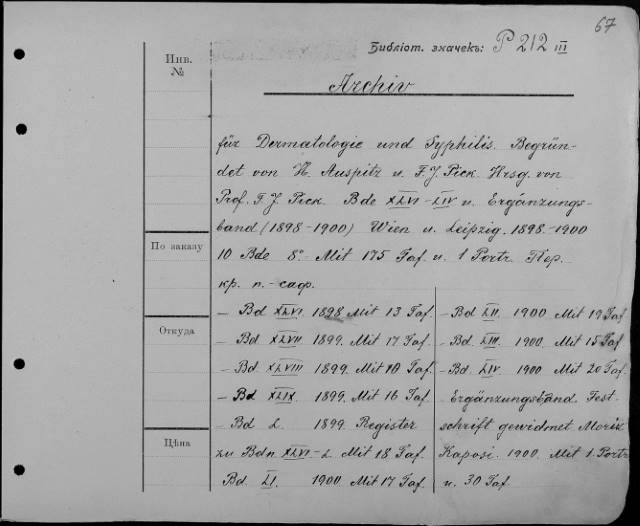 67
Инв.
№
Библіот. значекъ: P 212 III
Archiv
für Dermatologie und Syphilis. Begrün-
det von H. Auspitz u. F. J. Pick Hrsg. von
Prof. F. J. Pick. Bde XLVI - LIV u. Ergänzungs-
band (1898 - 1900) Wien u. Leipzig. 1898.-1900
10 Bde 8° - Mit 175 Taf. u. 1 Portr. Пер.
кр. п. - саф.
По заказу
Откуда
Цѣна
– Bd XLVI. 1898 Mit 13 Taf.
– Bd. XLVII. 1899. Mit 17 Taf.
– Bd. XLVIII 1899. Mit 10 Taf.
– Bd XLIX. 1899. Mit 16 Taf.
– Bd L. 1899. Register
zu Bdn. XLVI - L. Mit 18 Taf.
Bd. LI. 1900. Mit 17 Taf.
– Bd LII. 1900 Mit 19 Taf
– Bd. LIII. 1900. Mit 15 Taf
– Bd. LIV. 1900 Mit 20 Taf.
Ergänzungsband. Fest-
schrift gewidmet Moriz
Kaposi. 1900. Mit 1. Portr
u. 30 Taf.